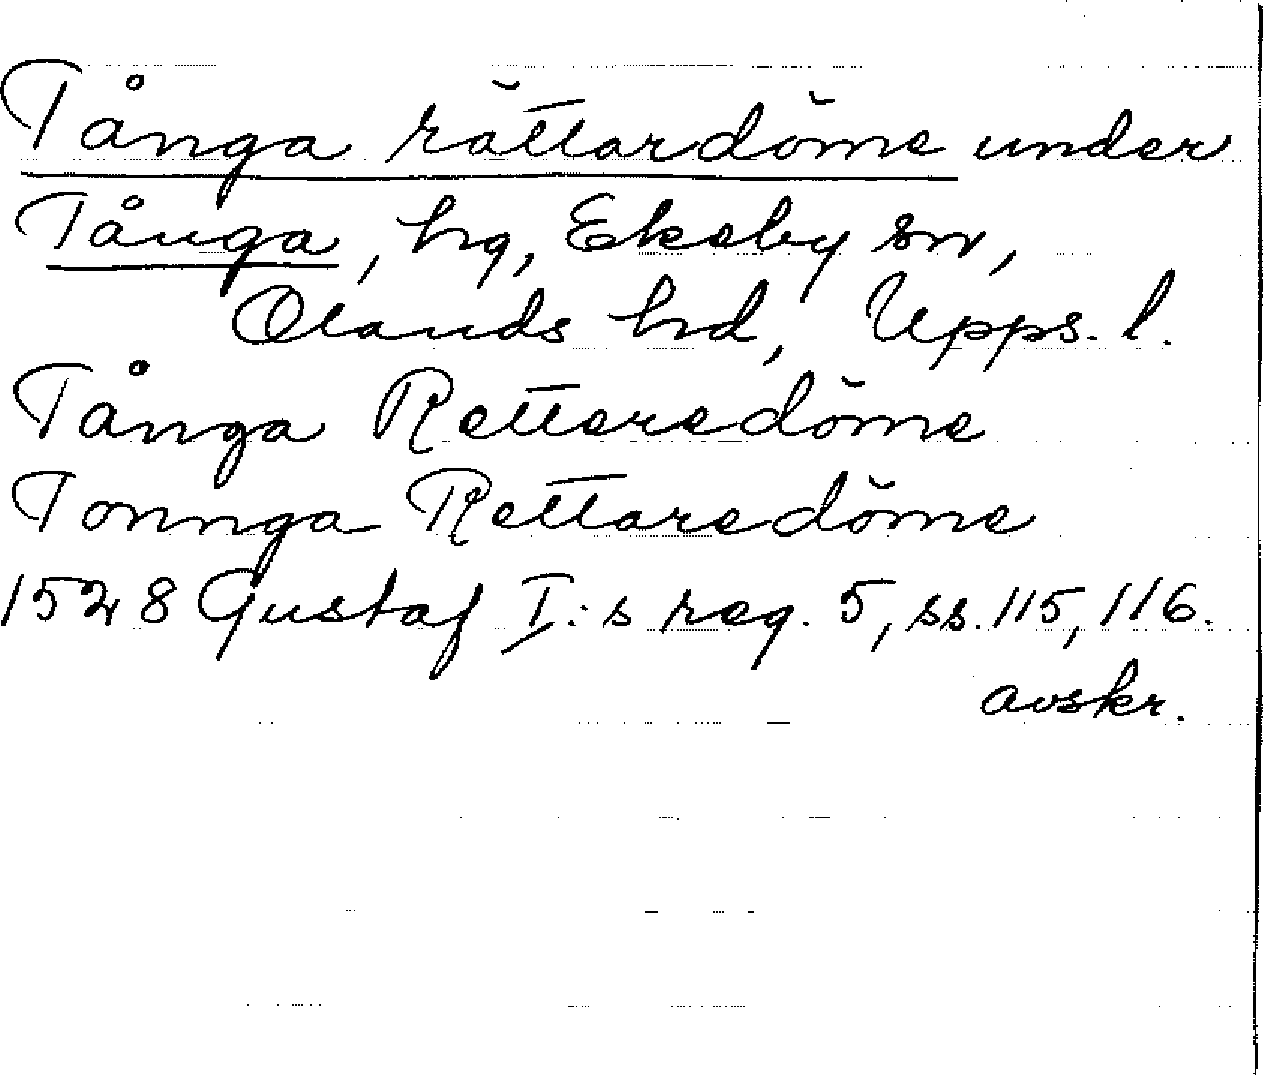 Tånga rättardöme under
Tånga, hg, Ekeby sn,
Olands hd, Upps. l.
Tånga Retteredöme
Tonnga Rettaredöme
1528 Gustaf I:s reg. 5, ss. 115, 116.
avskr.